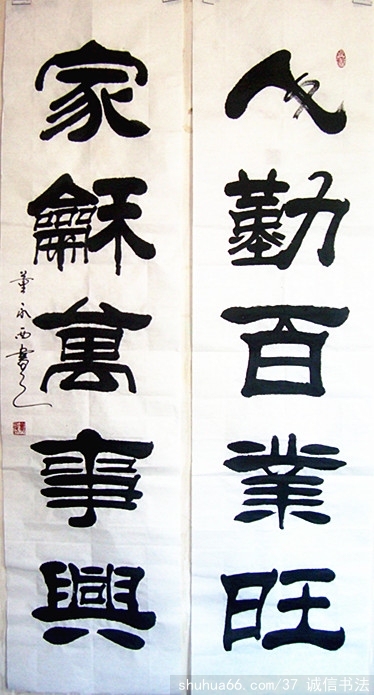 人勤百業旺
家龢萬事興
董永西書
shuhua66.com/37 诚信书法